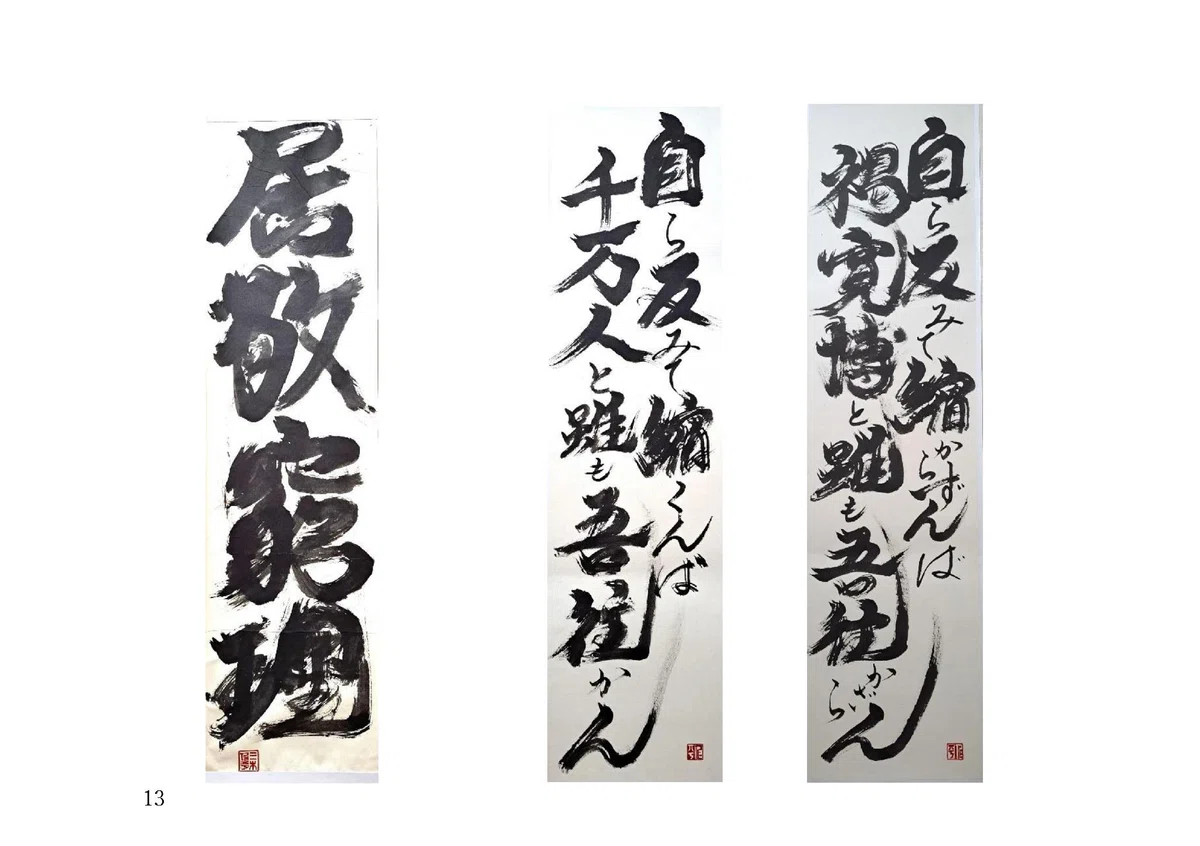 自ら反みて縮からずんば
褐寛博と雖も吾往かざらん
自ら反みて縮くんば
千万人と雖も吾往かん
居敬窮理
13